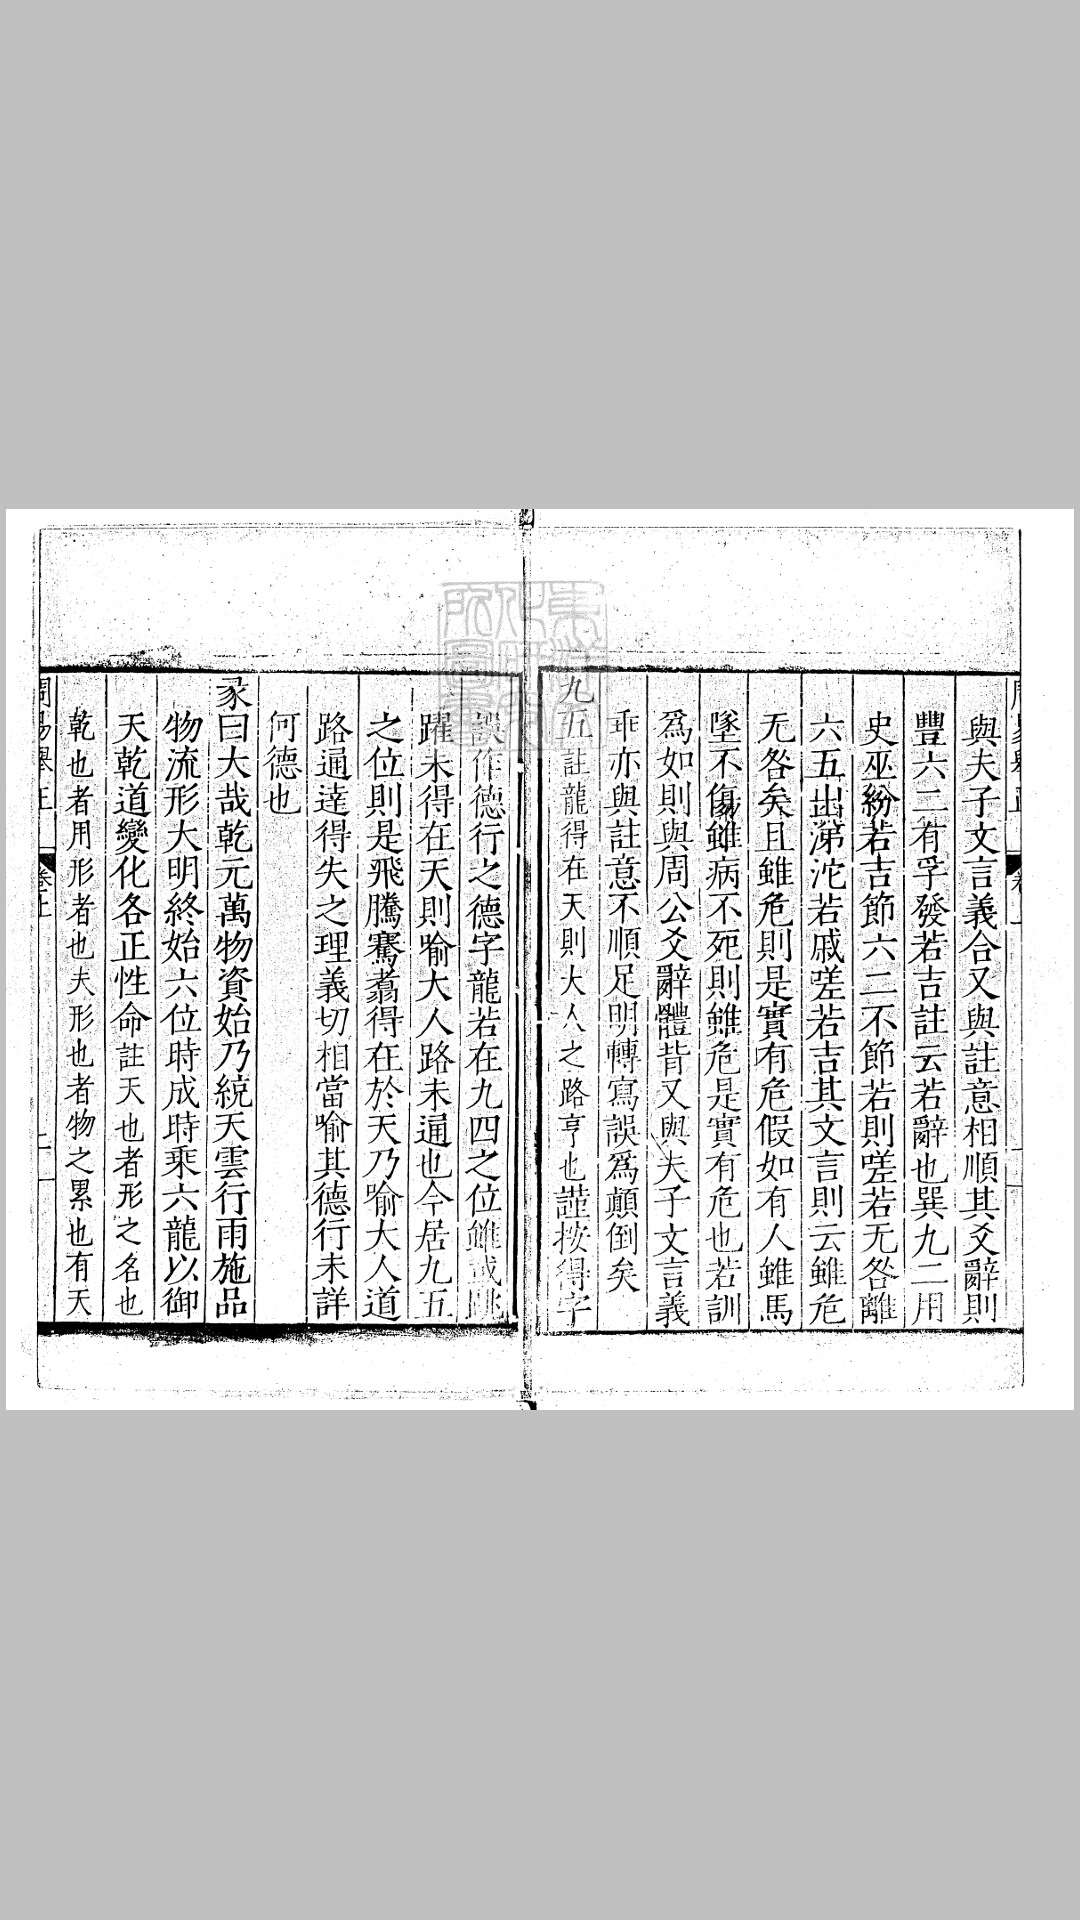 與夫子文言義合又與註意相順其爻辭則
豐六二有孚發若吉註云若辭也巽九二用
史巫紛若吉節六二不節若則嗟若无咎離
六五出涕沱若戚嗟若吉其文言則云雖危
无咎矣且雖危則是實有危假如有人雖馬
墜不傷雖病不死則雖危是實有危也若訓
爲如則與周公爻辭體背又與夫子文言義
乖亦與註意不順足明轉寫誤爲顛倒矣
九五註龍得在天則大人之路亨也謹按得字
誤作德行之德字龍若在九四之位雖或跳
躍未得在天則喻大人路未通也今居九五
之位則是飛騰騫翥得在於天乃喻大人道
路通達得失之理義切相當喻其德行未詳
何德也
彖曰大哉乾元萬物資始乃統天雲行雨施品
物流形大明終始六位時成時乘六龍以御
天乾道變化各正性命註天也者形之名也
乾也者用形者也夫形也者物之累也有天
周易舉正 卷上